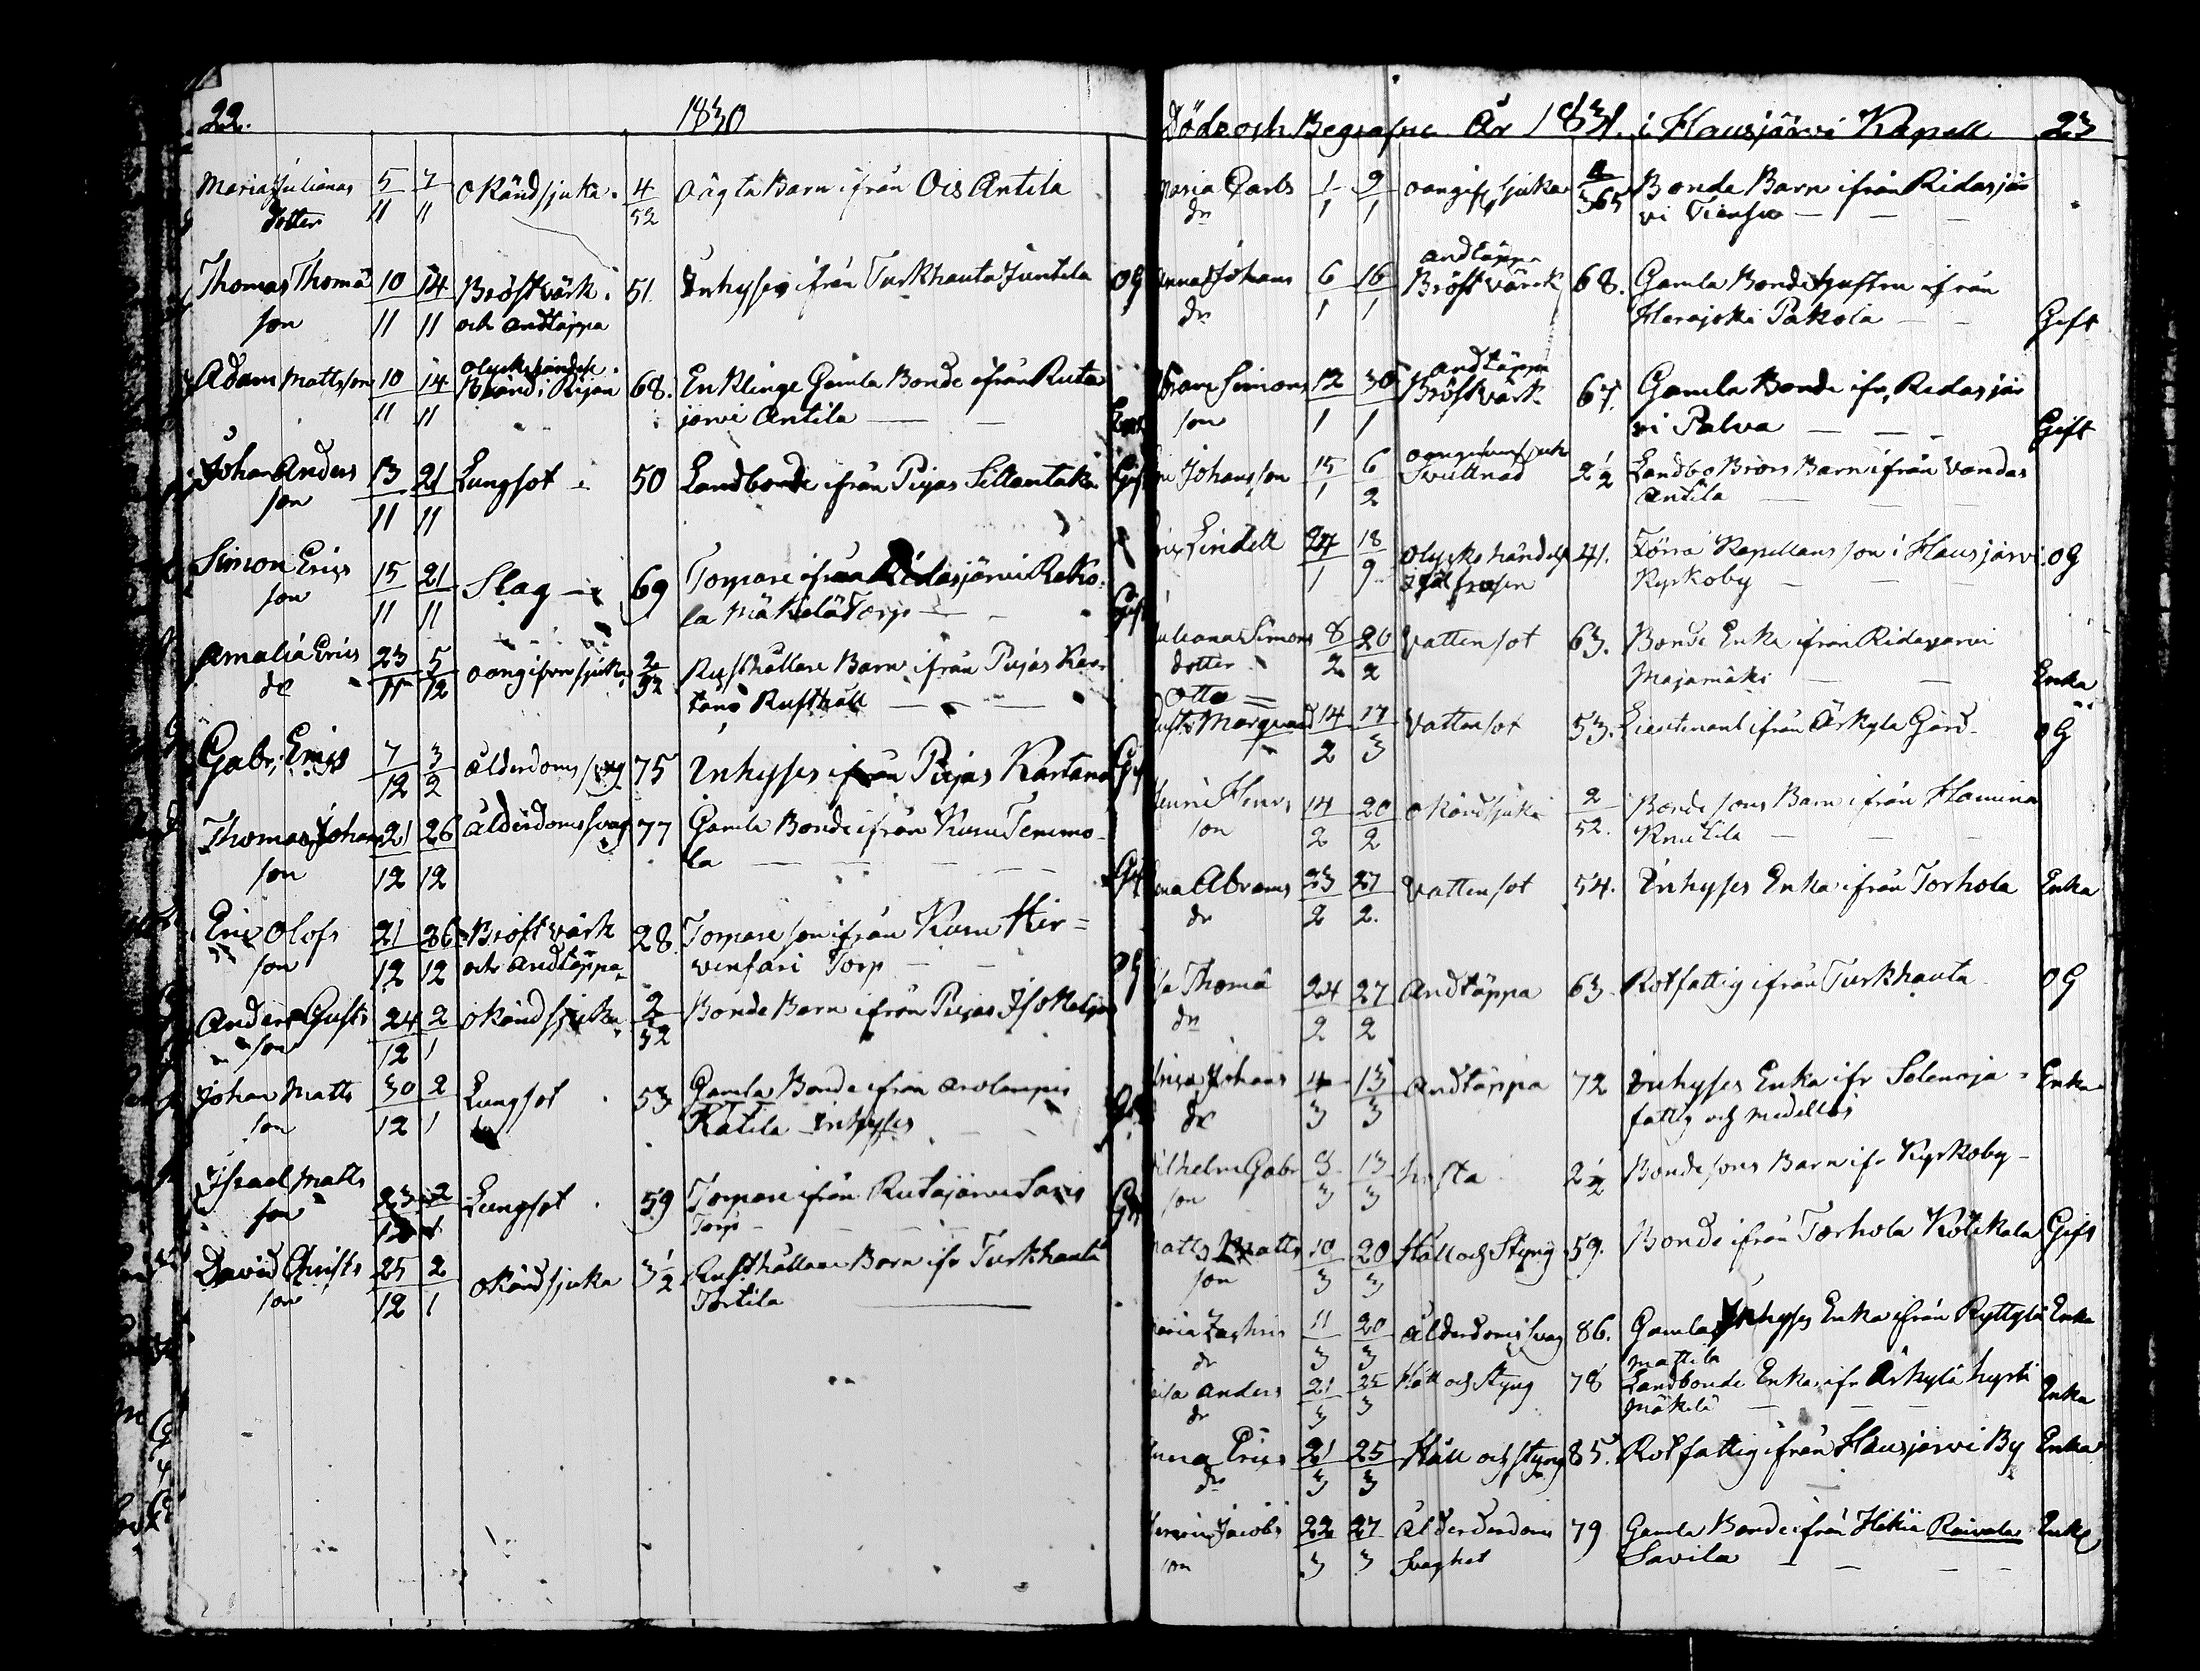 22. 1830
Maria Julianas 5/11 7/11 okänd sjuka. 4/52 oägta Barn ifrån Ois Antila
dotter
Thomas Thomä 10/11 14/11 Bröstvärk. 51. Inhyses ifrån Turkhauta Juntila OG
son och andtäppa
olyckshändelse.
Adam Mattsson 10/11 14/11 Bränd i Rijan 68. Enklinge Gamla Bonde ifrån Ruta
järvi Antila
Johan Anders 13/11 21/11 Lungsot 50 Landbonde ifrån Pirjas Gift
son
Simon Erics 15/11 21/11 Slag 69 Torpare ifrån Ridasjärvi Rako-
son la Mäkelä Torp Gift
Amalia Erics 23/11 5/12 oangifven sjuka 2/52 Rusthållare Barn ifrån Pirjas Kar-
dr tano Rusthåll
Gabr. Erics 7/12 3/2 ålderdoms svag 75 Inhyses ifrån Pirjas Kartano
Thomas Johans 21/12 26/12 ålderdoms svag 77 Gamla Bonde ifrån Kuru Temmo-
son la
Eric Olofs 21/12 26/12 Bröstvärk 28. Torpare son ifrån Kuru Hir=
son och andtäppa venfari Torp OG
Anders Gusts 24/12 2/1 okänd sjuka 2/52 Bonde Barn ifrån Pirjas
son
Johan Matts 30/12 2/1 Lungsot 53 Gamla Bonde ifrån
son Katila Inhyses
Israel Matts 23/12 2/1 Lungsot 59 Torpare ifrån Rutajärvi
son Torp
David Christs 25/12 2/1 okänd sjuka 3 1/2 Rusthållare Barn ifr Turkhauta
son Tortila
Döde och Begrafne År 1831. i Hausjärvi Kapell 23
Maria Carls 1/1 9/1 oangif. sjuka /365 Bonde Barn ifrån Ridasjär
dr vi
andtäppa
Anna Johans 6/1 16/1 Bröstvärck 68. Gamla Bonde Hustru ifrån
dr Herajoki Pakola Gift
andtäppa
Abram Simons 12/1 30/1 Bröstvärk 67. Gamla Bonde ifr. Ridasjär
son vi Palva Gift
Johansson 15/1 6/2 Svullnad 2 1/2 Landbo Brors Barn ifrån Vandas
Antila
Eric Lindell 27/1 18/9 olyckshändelse 41. Förra Kapellans son i Hausjärvi OG
ihjälfrusen Kyrkoby
Juliana Simons 8/2 20/2 Vattensot 63. Bonde Enka ifrån Ridasjärvi
dotter Majamäki Enka
Otto =
Gust. 14/2 17/3 Vattensot 53. Lieutenant ifrån Ärkylä Gård OG
Henric Henrics 14/2 20/2 okänd sjuka 2/52. Bonde sons Barn ifrån Hamina
son Knutila
Abrams 23/2 27/2. Vattensot 54. Inhyses Enka ifrån Torhola Enka
dr
Thomä 24/2 27/2 Andtäppa 63. Rotfattig ifrån Turkhauta OG
dr
Johans 4/3 13/3 Andtäppa 72 Inhyses Enka ifr Selänoja Enka
dr fattig och medellös
Vilhelm Gabr. 8/3 13/3 hosta 2 1/2 Bonde sons Barn ifr Kyrkoby
son
Matts Matts 10/3 20/3 Håll och Styng 59. Bonde ifrån Torhola Gift
son
Maria Zachris 11/3 20/3 ålderdoms svag 86. Gamla Inhyses Enka ifrån Ryttylä Enka
dr Mattila
Anders 21/3 25/3 Håll och styng 78 Landbonde Enka ifr Ärkylä Enka
dr Mäkelä
Anna Erics 21/3 25/3 Håll och styng 85. Rotfattig ifrån Hausjärvi By Enka
dr
Jacobs 22/3 27/3 Ålderdoms 79 Gamla Bonde ifrån Hikiä Raivala Enkl.
son Svaghet Savila